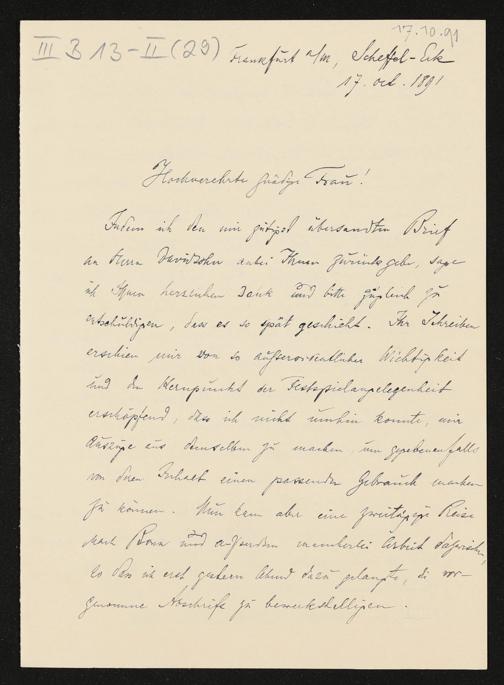 17.10.91
III B 13-II (29)
Frankfurt a/M, Scheffel-Eck
17. oct. 1891
Hochverehrte gnädige Frau!
Indem ich den mir gütigst übersandten Brief
an Herrn Davidsohn anbei Ihnen zurückgebe, sage
ich Ihnen herzlichen Dank und bitte zugleich zu
entschuldigen, dass es so spät geschieht. Ihr Schreiben
erschien mir von so außerordentlicher Wichtigkeit
und den Kernpunkt der Festspielangelegenheit
erschöpfend, dass ich nicht umhin konnte, mir
Auszüge aus demselben zu machen, um gegebenenfalls
von deren Inhalt einen passenden Gebrauch machen
zu können. Nun kam aber eine zweitägige Reise
nach Bonn und außerdem mancherlei Arbeit dazwischen,
so dass ich erst gestern Abend dazu gelangte, die vor-
genommene Abschrift zu bewerkstelligen.